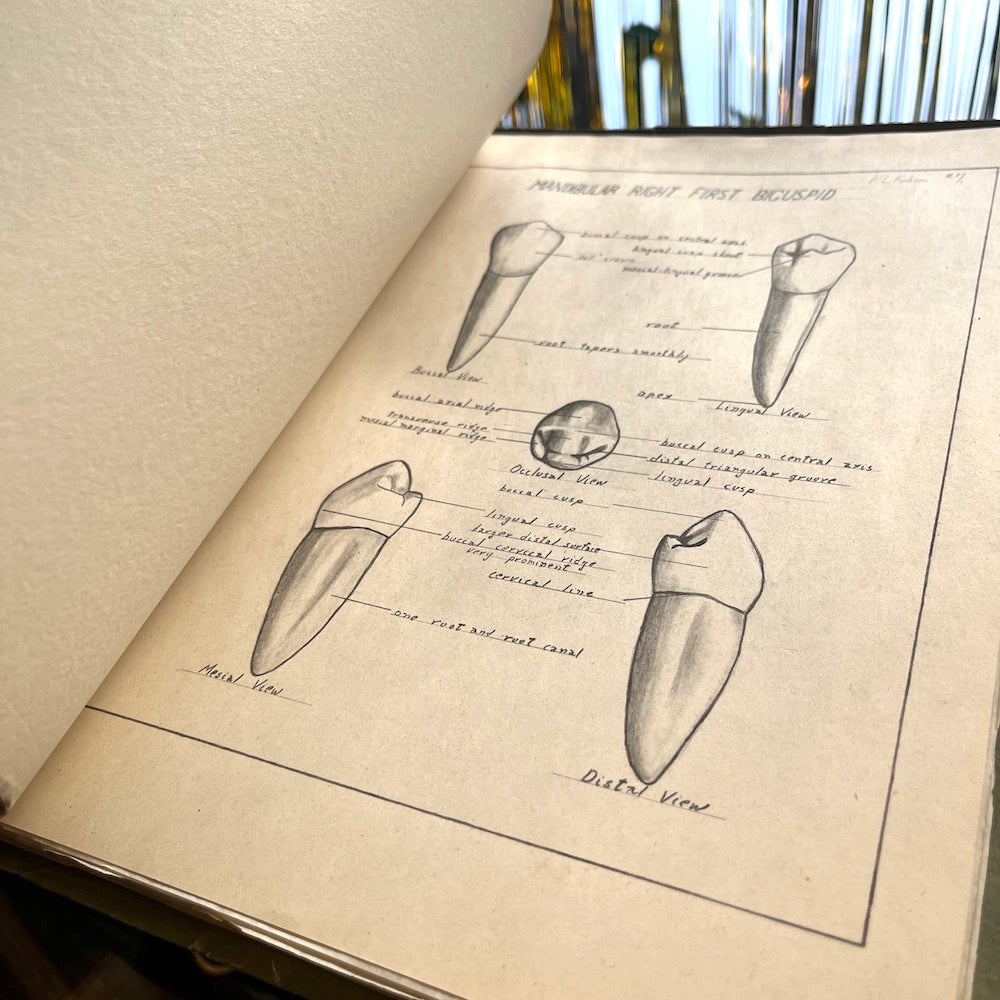 MANDIBULAR RIGHT FIRST BICUSPID
buccal cusp on central axis
lingual cusp short
crown
mesial-lingual groove
root
root tapers smoothly
Buccal View
apex
Lingual View
buccal axial ridge
transverse ridge
mesial marginal ridge
buccal cusp on central axis
distal triangular groove
lingual cusp
Occlusal View
buccal cusp
lingual cusp
larger distal surface
buccal cervical ridge
very prominent
cervical line
one root and root canal
Mesial View
Distal View